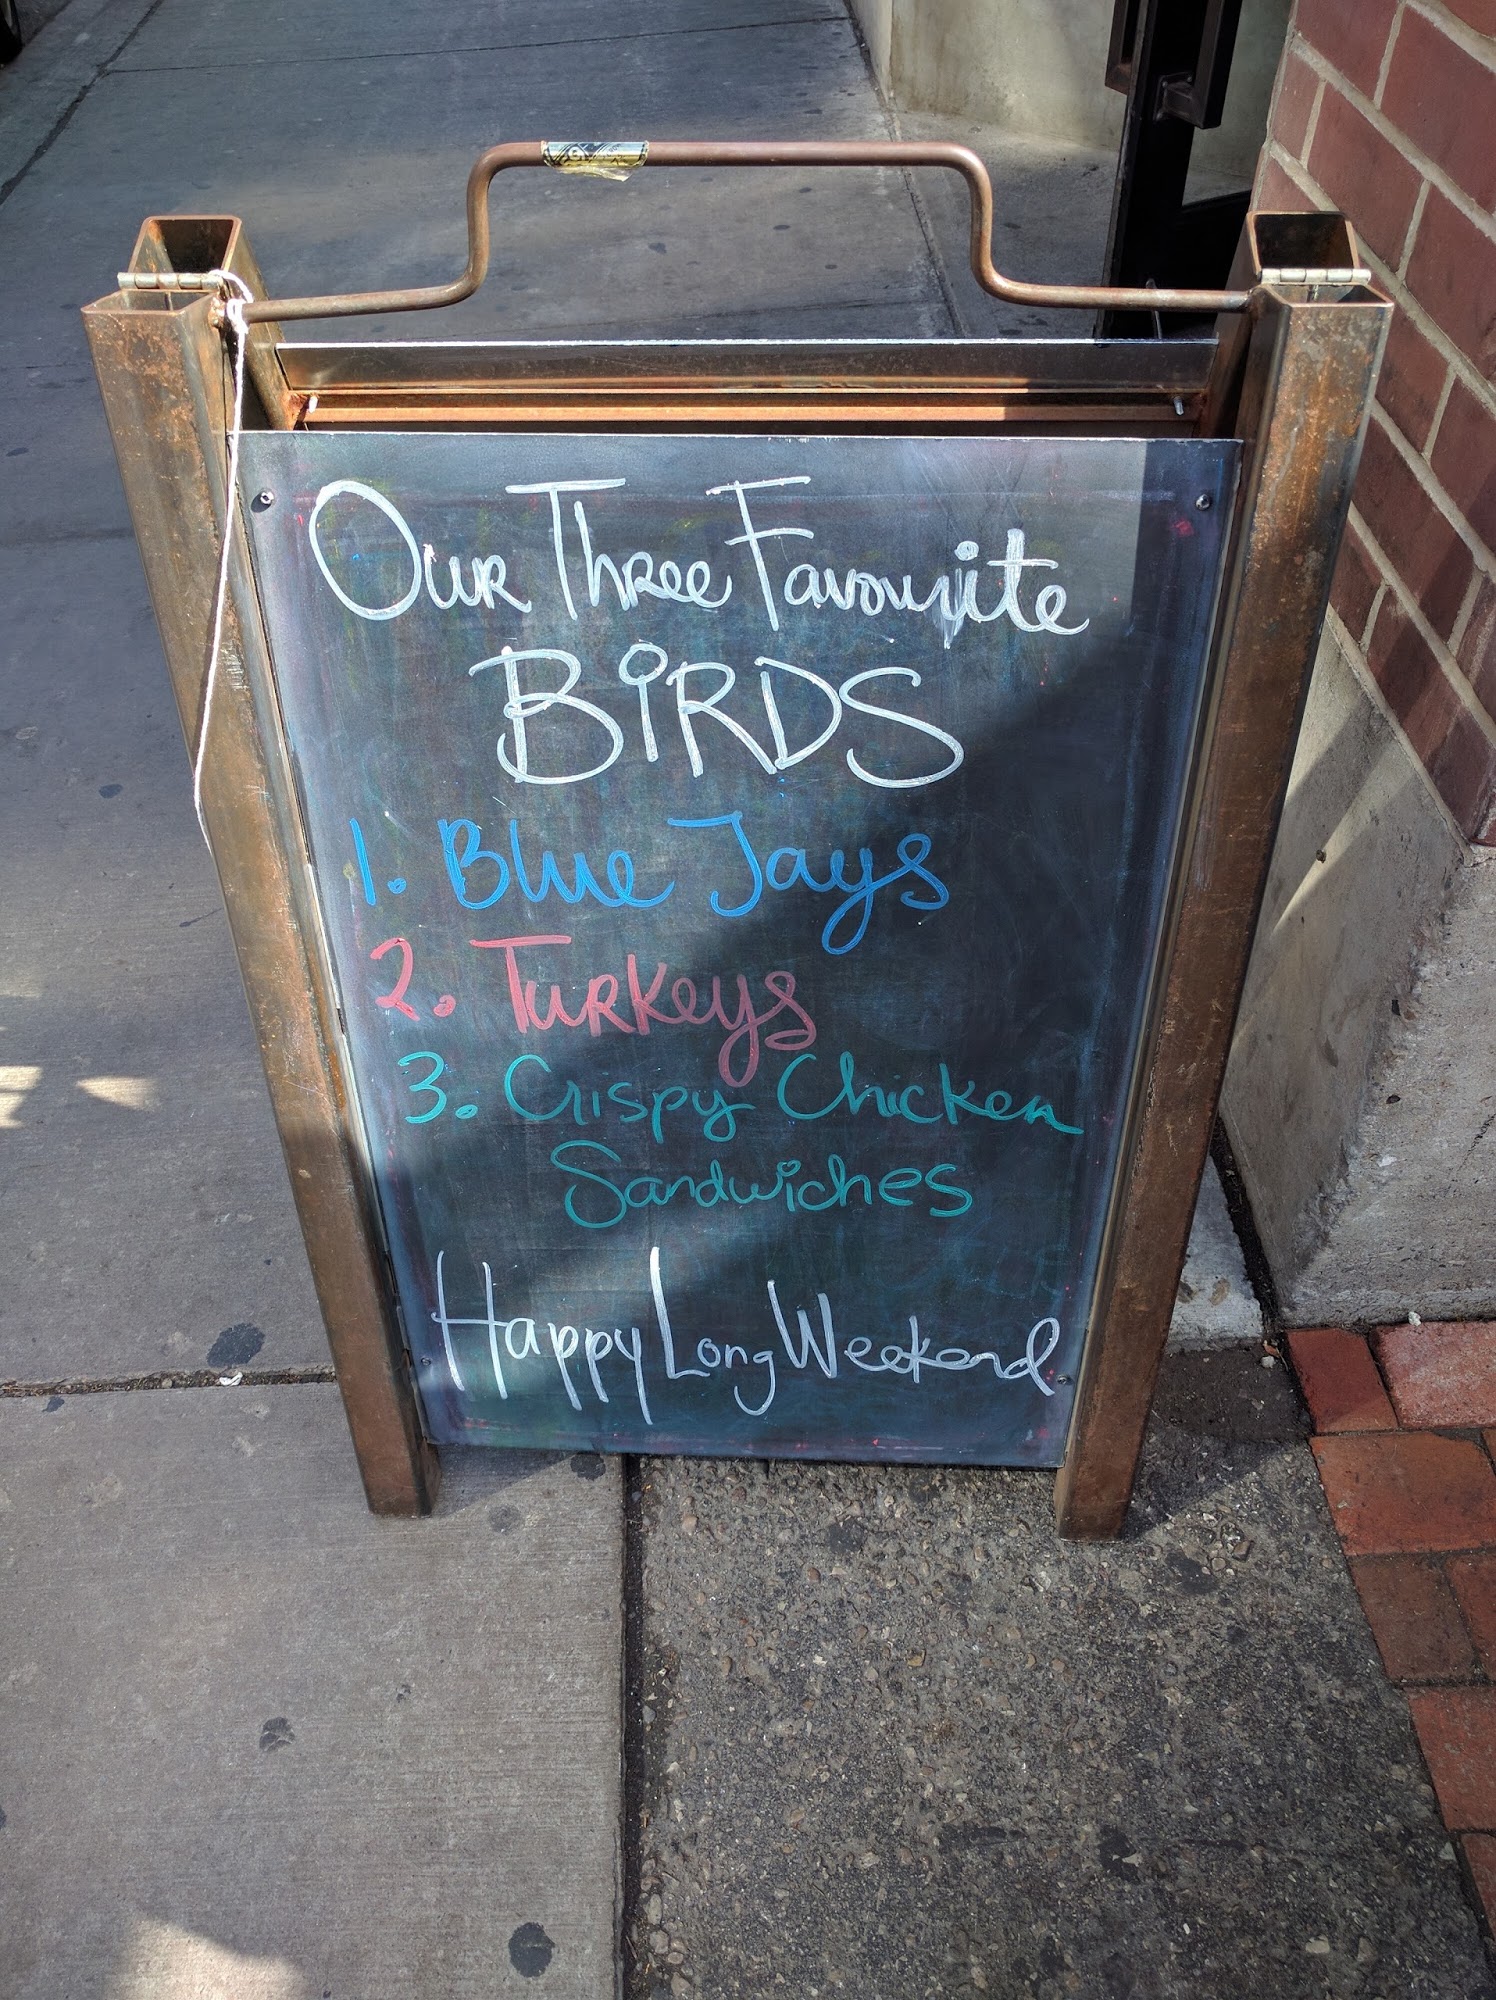 Our Three Favourite
BIRDS
1. Blue Jays
2. Turkeys
3. Crispy Chicken
Sandwiches
Happy Long Weekend